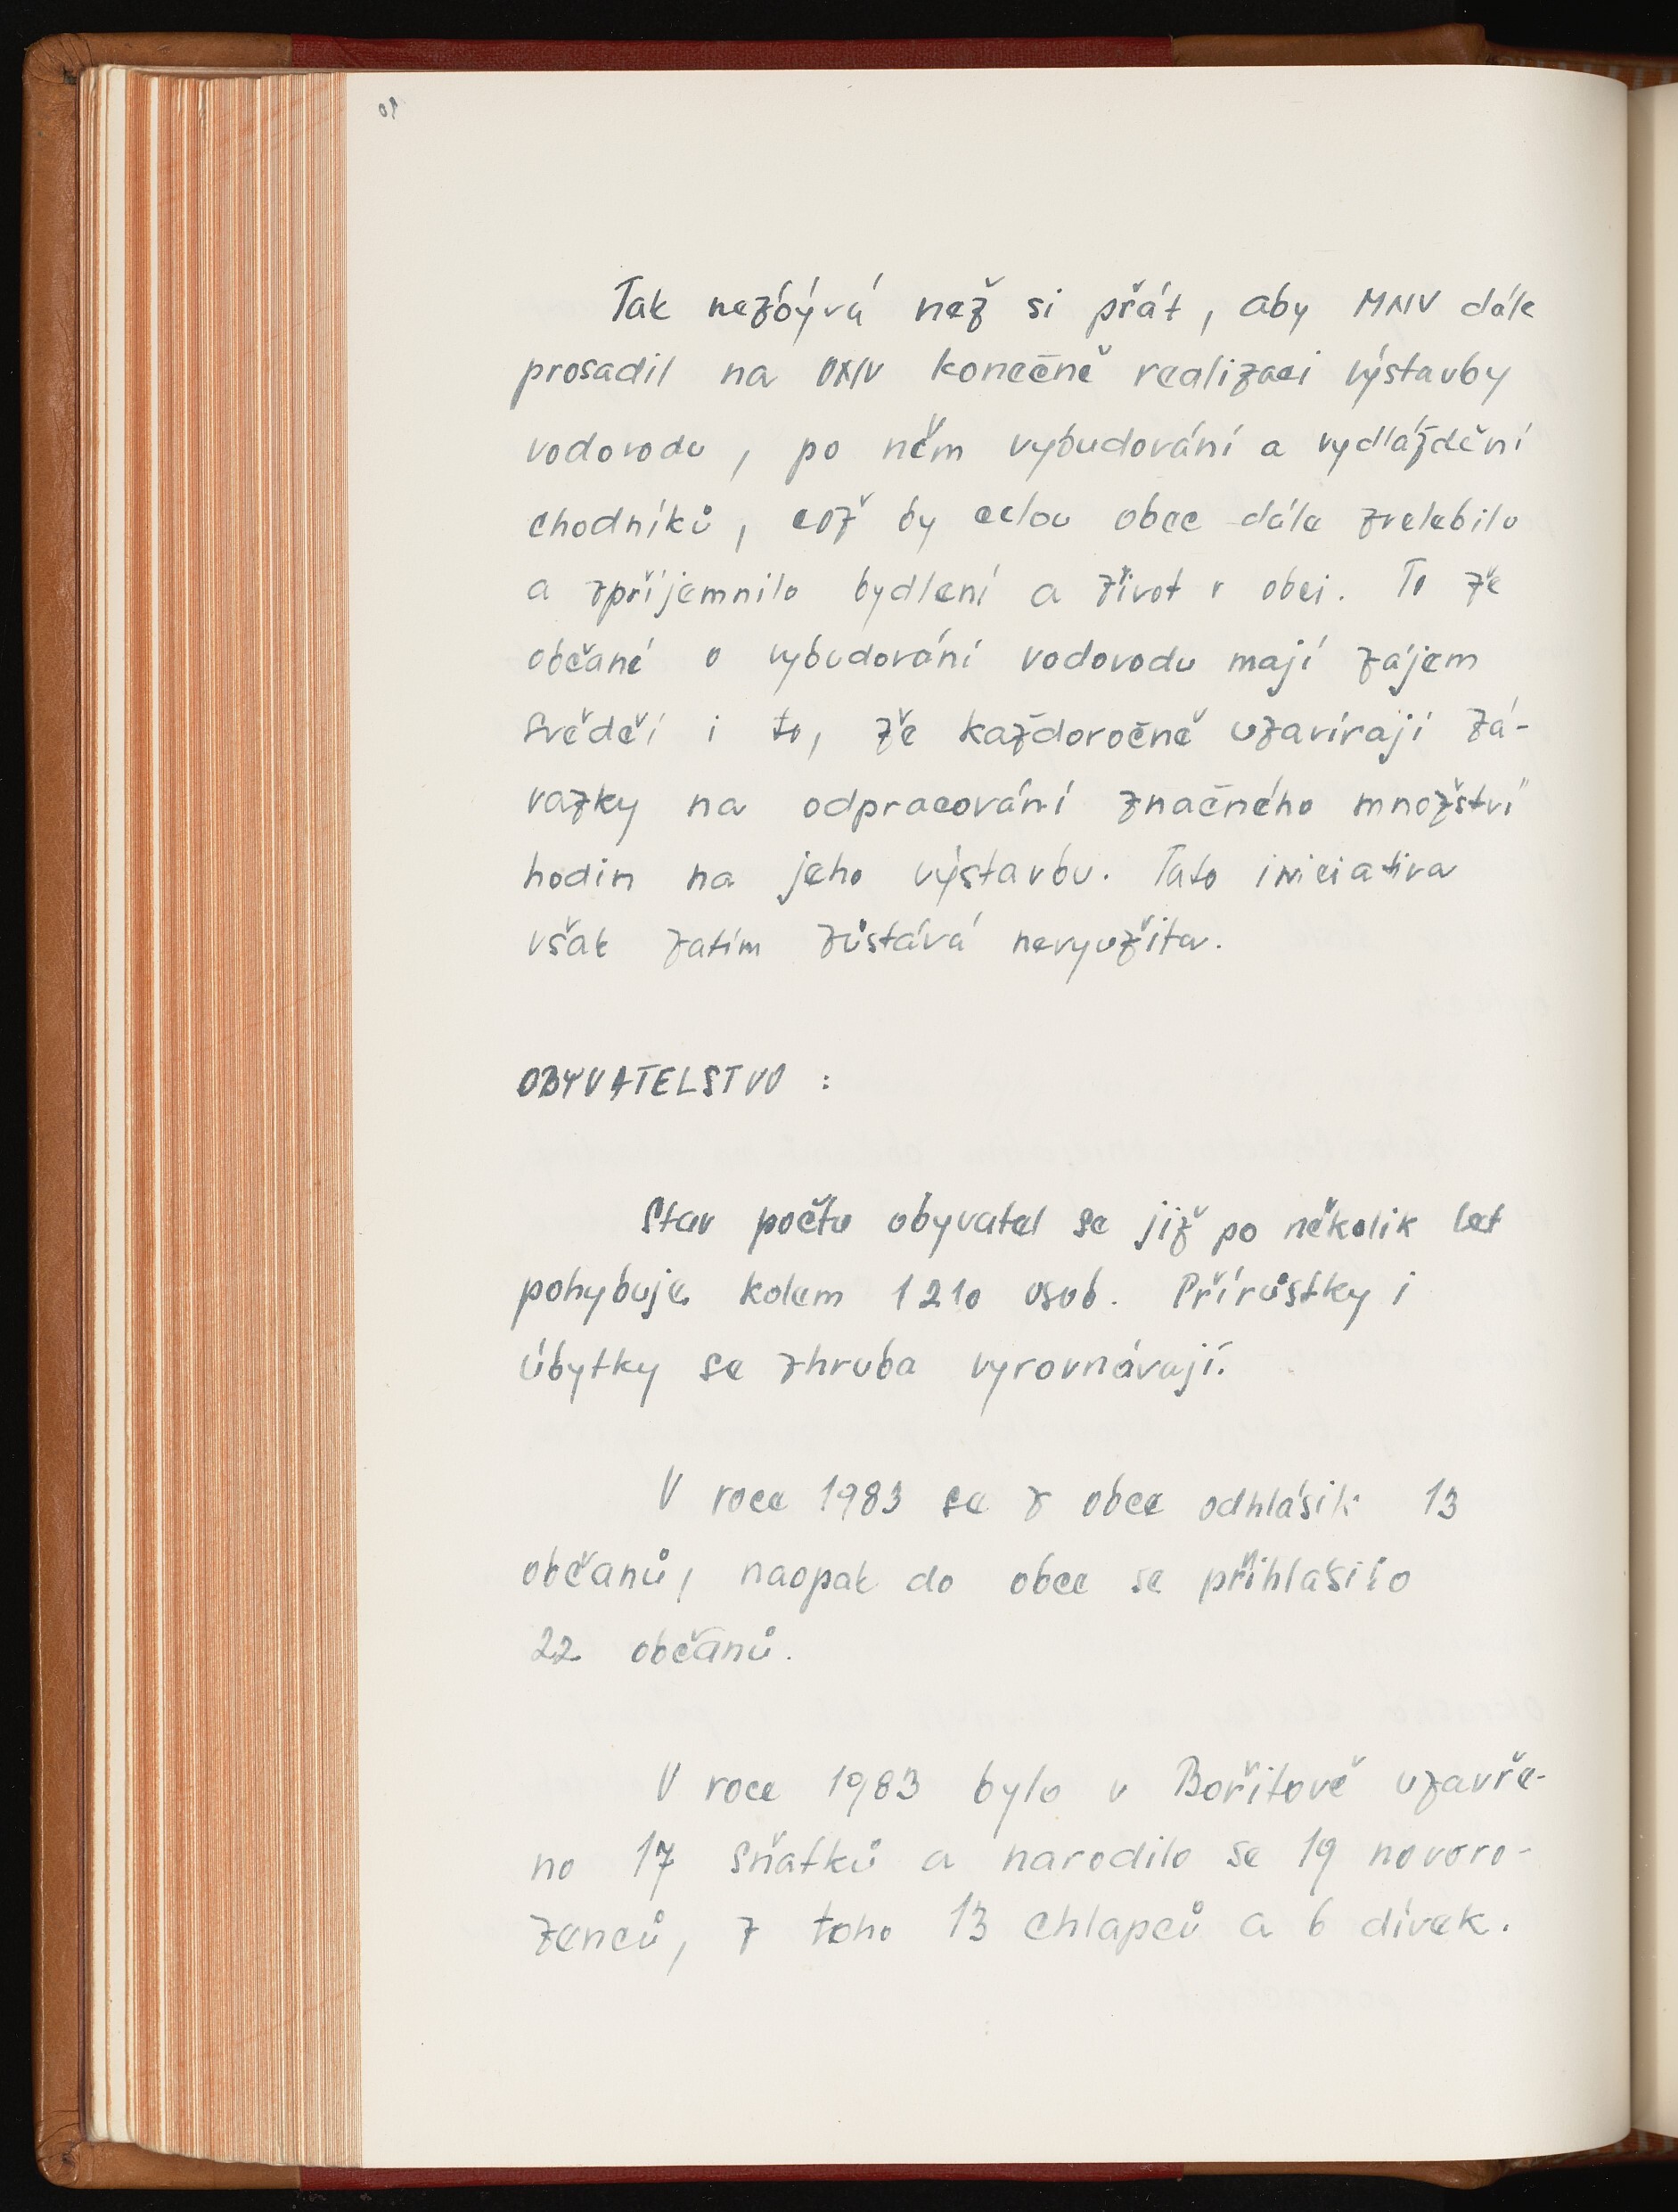 Tak nezbývá než si přát, aby MNV dále
prosadil na ONV konečně realizaci výstavby
vodovodu, po něm vybudování a vydláždění
chodníků, což by celou obec dále zvelebilo
a zpříjemnilo bydlení a život v obci. To že
občané o vybudování vodovodu mají zájem
svědčí i to, že každoročně uzavírají zá-
vazky na odpracování značného množství
hodin na jeho výstavbu. Tato iniciativa
však zatím zůstává nevyužita.
OBYVATELSTVO :
Stav počtu obyvatel se již po několik let
pohybuje kolem 1210 osob. Přírůstky i
úbytky se zhruba vyrovnávají.
V roce 1983 se z obce odhlásili 13
občanů, naopak do obce se přihlásilo
22 občanů.
V roce 1983 bylo v Bořitově uzavře-
no 17 sňatků a narodilo se 19 novoro-
zenců, z toho 13 chlapců a 6 dívek.